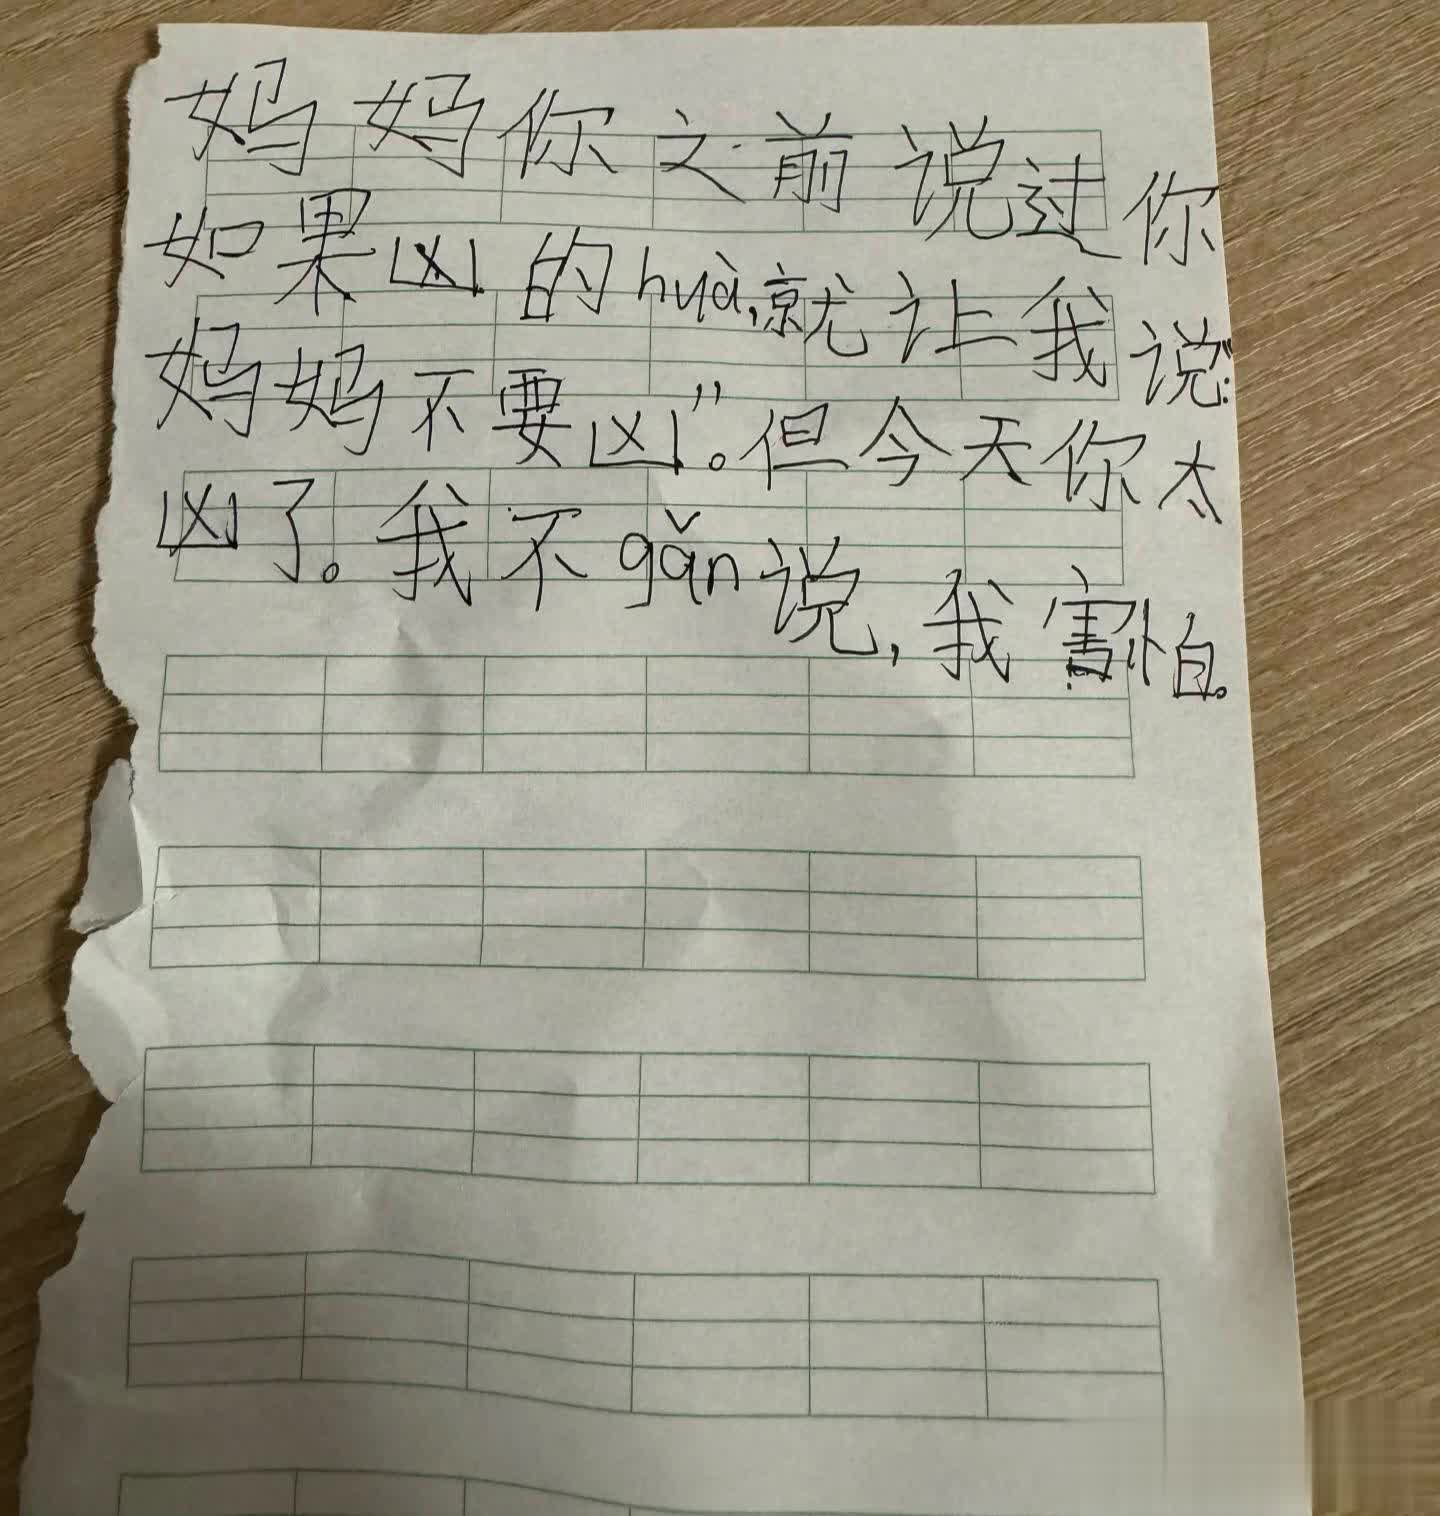 妈妈你之前说过你
如果凶的huà,就让我说:“
妈妈不要凶”。但今天你太
凶了。我不gǎn说,我害怕。